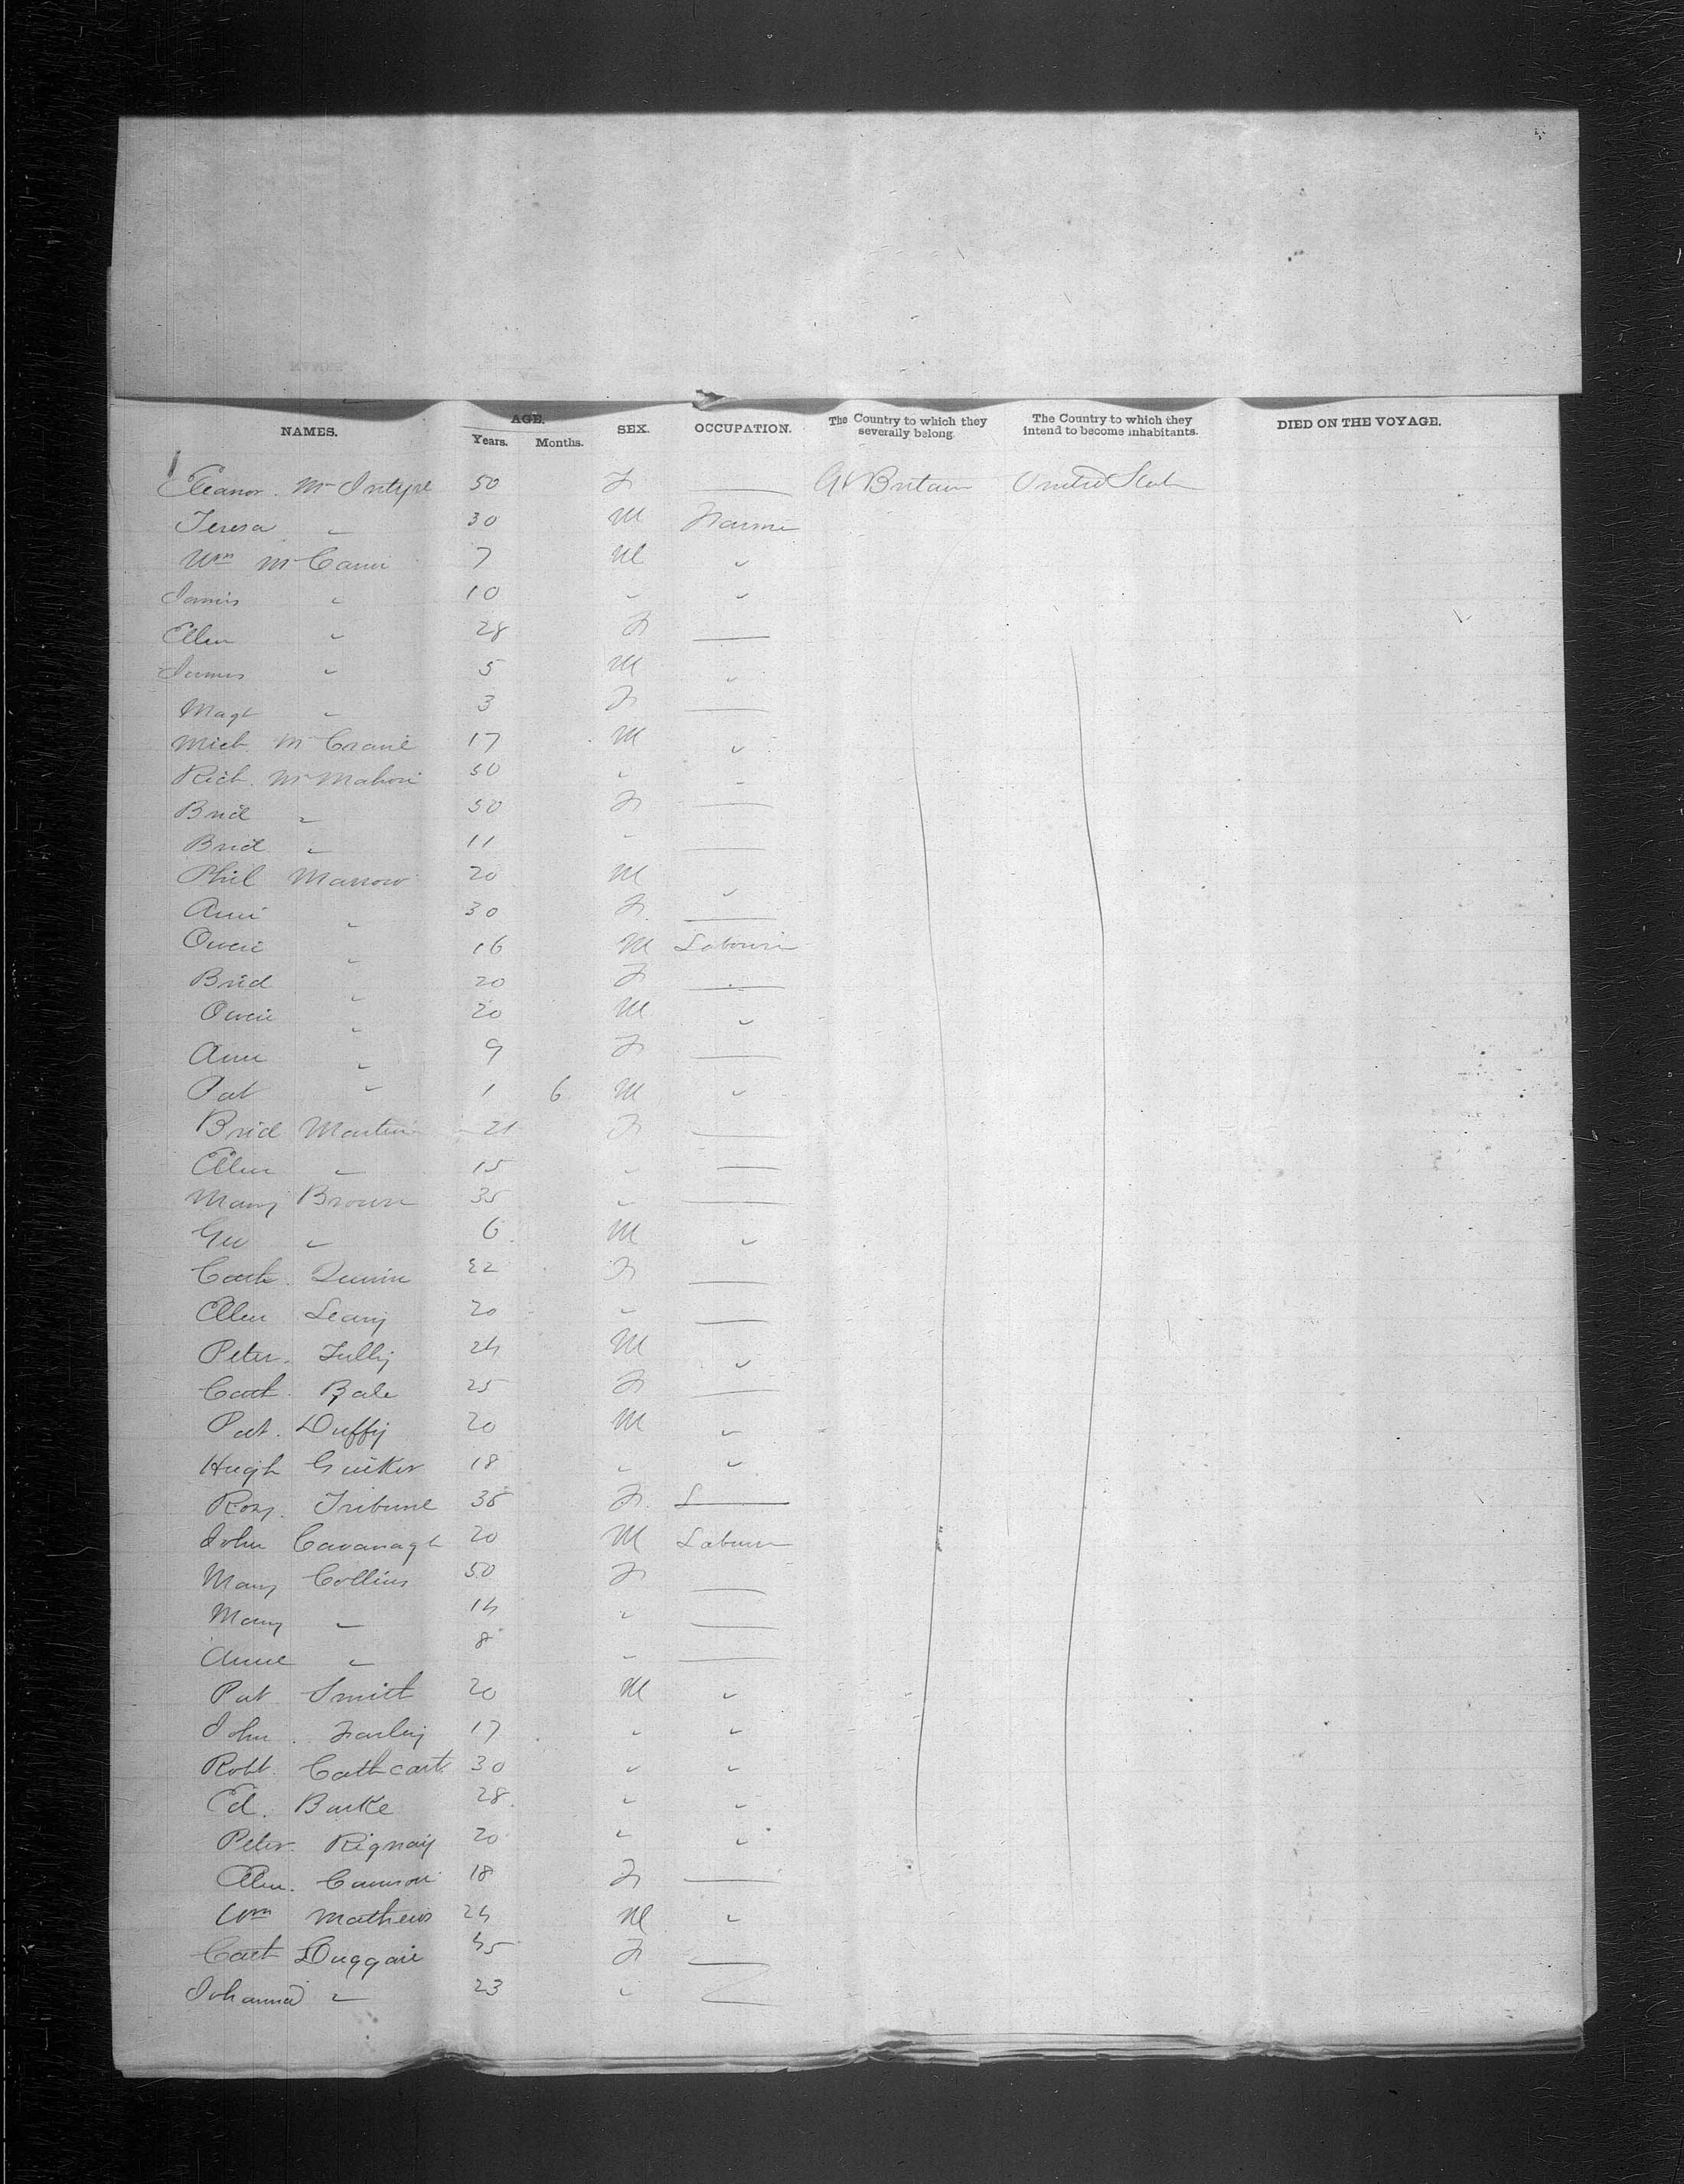 NAMES. AGE. Years. Months. SEX. OCCUPATION. The Country to which they severally belong. The Country to which they intend to become inhabitants. DIED ON THE VOYAGE.
Eleanor McIntyre 50 F — Gt Britain United State
Teresa " 30 M Farmer
Wm McCann 7 M "
James " 10 " "
Ellen " 28 F —
James " 5 M "
Magt " 3 F —
Mich. McCrane 17 M "
Rich. McMahon 50 " "
Brid " 50 F —
Brid " 11 " —
Phil Marrow 20 M "
Ann " 30 F —
Owen " 16 M Labourer
Brid " 20 F —
Owen " 20 M "
Ann " 9 F —
Pat " 1 6 M "
Brid Martin 21 F —
Ellen " 15 " —
Mary Brown 35 " —
Geo " 6 M "
Cath. Quinn 22 F —
Ellen Leary 20 " —
Peter. Tully 24 M "
Cath. Bale 25 F —
Pat. Duffy 20 M "
Hugh 18 " "
Rosy. Tribune 38 F. L—
John Cavanagh 20 M Labourer
Mary Collins 50 F —
Mary " 14 " —
Anne " 8 " —
Pat Smith 20 M "
John. Farley 17 " "
Robt. Cathcart 30 " "
Ed. Burke 28 " "
Peter. Rignay 20 " "
Ellen. Cannon 18 F —
Wm Mathews 24 M "
Cath Duggan 45 F —
Johanna " 23 " —